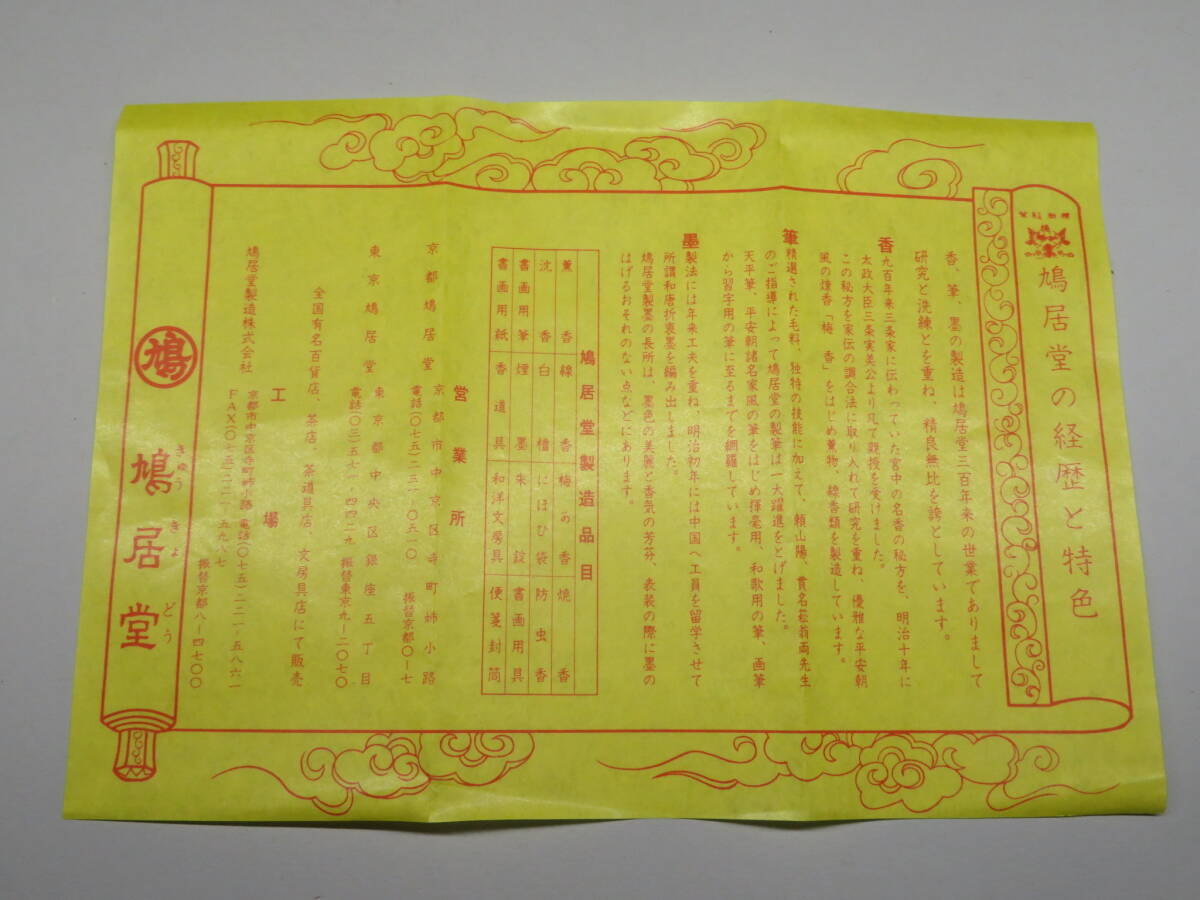 鳩居堂の経歴と特色
香、筆、墨の製造は鳩居堂三百年来の世業でありまして
研究と洗練とを重ね、精良無比を誇としています。
香 九百年来三条家に伝わっていた宮中の名香の秘方を、明治十年に
太政大臣三条実美公より凡て親授を受けました。
この秘方を家伝の調合法に取り入れて研究を重ね、優雅な平安朝
風の煉香「梅ヶ香」をはじめ薫物、線香類を製造しています。
筆 精選された毛料、独特の技能に加えて、頼山陽、貫名菘翁両先生
のご指導によって鳩居堂の製筆は一大躍進をとげました。
天平筆、平安朝諸名家風の筆をはじめ揮毫用、和歌用の筆、画筆
から習字用の筆に至るまでを網羅しています。
墨 製法には年来工夫を重ね、明治初年には中国へ工員を留学させて
所謂和唐折衷墨を編み出しました。
鳩居堂製墨の長所は、墨色の美麗と香気の芳芬、表装の際に墨の
はげるおそれのない点などにあります。
鳩居堂製造品目
薫香 線香 梅ヶ香 焼香
沈香 白檀 にほひ袋 防虫香
書画用筆 煙墨 朱錠 書画用具
書画用紙 香道具 和洋文房具 便箋封筒
営業所
京都鳩居堂 京都市中京区寺町姉小路
電話(〇七五)二三一-〇五一〇 振替京都〇-七
東京鳩居堂 東京都中央区銀座五丁目
電話(〇三)五七一-四四二九 振替東京九-二〇七〇
全国有名百貨店、茶店、茶道具店、文房具店にて販売
工場
鳩居堂製造株式会社 京都市中京区寺町姉小路 電話(〇七五)二二一-五八六一
FAX(〇七五)二二一-五九八七 振替京都八-四七〇〇
鳩
鳩居堂
きゅうきょどう